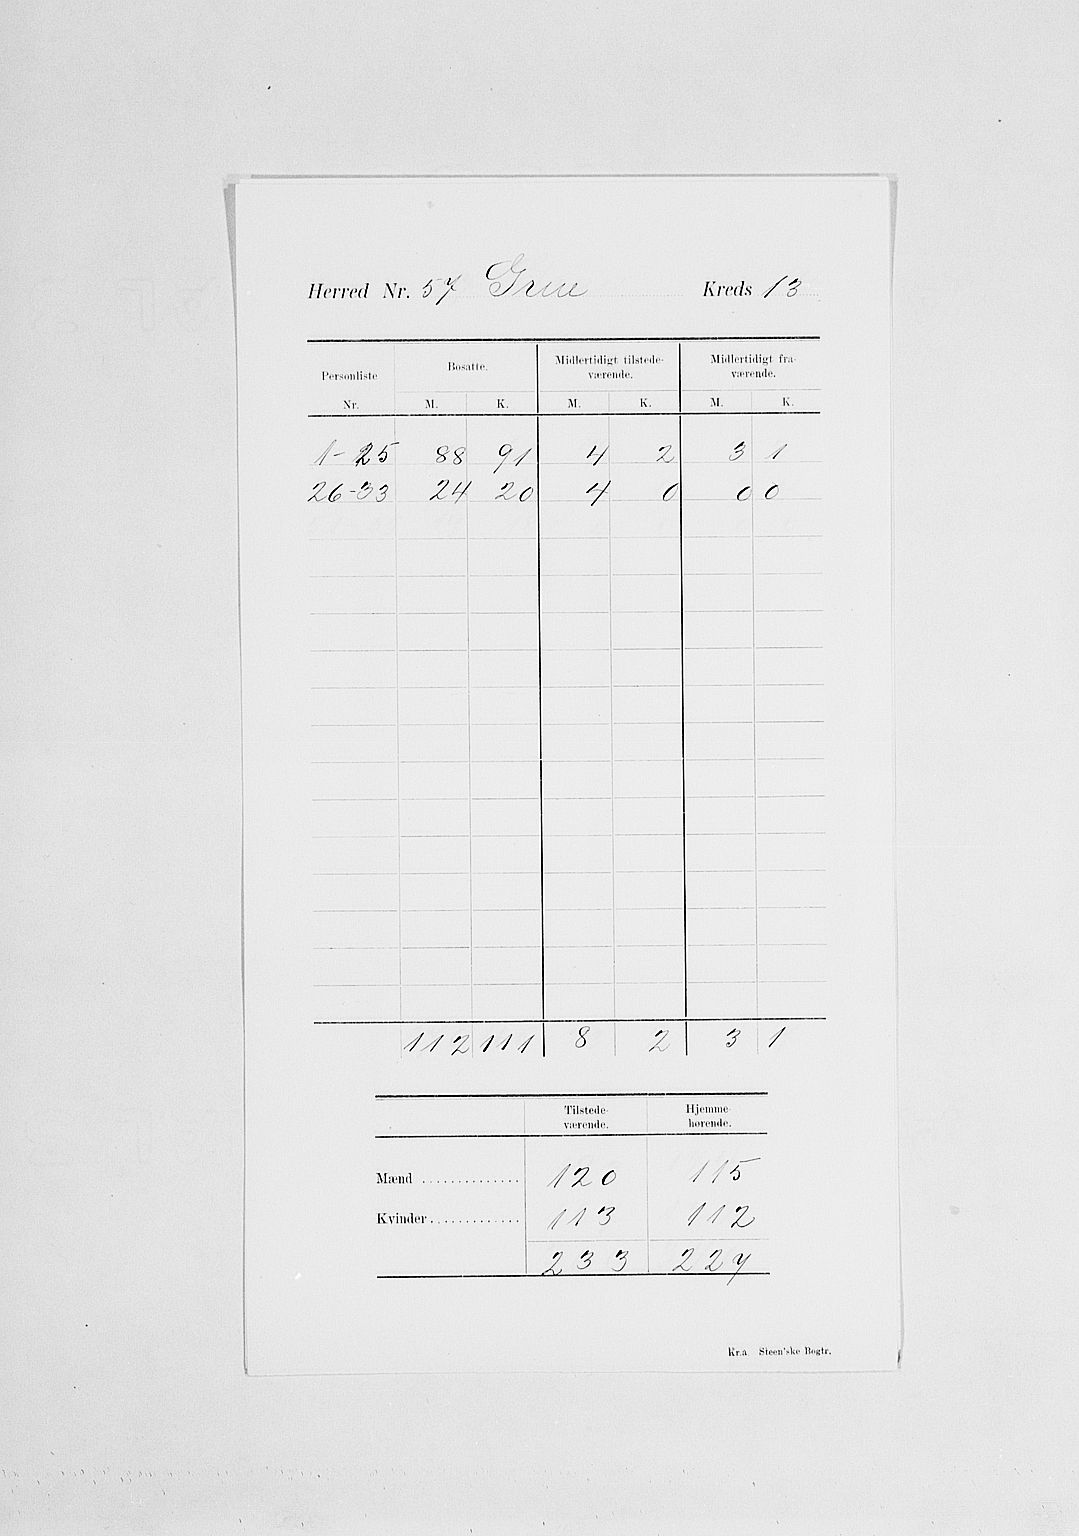 Herred Nr. 57 Grue Kreds 13
Personliste Nr. Bosatte. Midlertidigt tilstede-værende. Midlertidigt fra-værende.
M. K. M. K. M. K.
1-25 88 91 4 2 3 1
26-33 24 20 4 0 0 0
112 111 8 2 3 1
Tilstede-værende. Hjemme-hørende.
Mænd .............. 120 115
Kvinder............. 113 112
233 227
Kr.a Steen'ske Bogtr.